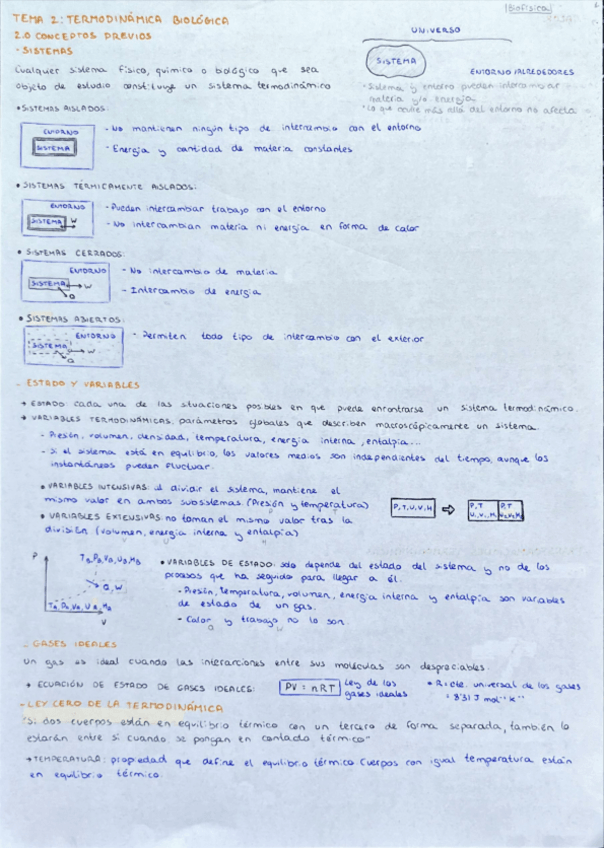 Biofísica
TEMA 2: TERMODINÁMICA BIOLÓGICA
2.0 CONCEPTOS PREVIOS
- SISTEMAS
Cualquier sistema físico, químico o biológico que sea
objeto de estudio constituye un sistema termodinámico
UNIVERSO
SISTEMA
ENTORNO/ALREDEDORES
- Sistema y entorno pueden intercambiar
materia y/o energía
- Lo que ocurre más allá del entorno no afecta
• SISTEMAS AISLADOS:
ENTORNO
SISTEMA
- No mantienen ningún tipo de intercambio con el entorno
- Energía y cantidad de materia constantes
• SISTEMAS TÉRMICAMENTE AISLADOS:
ENTORNO
SISTEMA W
- Pueden intercambiar trabajo con el entorno
- No intercambian materia ni energía en forma de calor
• SISTEMAS CERRADOS:
ENTORNO
SISTEMA W
Q
- No intercambio de materia
- Intercambio de energía
• SISTEMAS ABIERTOS:
ENTORNO
SISTEMA W
Q
- Permiten todo tipo de intercambio con el exterior
- ESTADO Y VARIABLES
→ ESTADO: cada una de las situaciones posibles en que puede encontrarse un sistema termodinámico.
→ VARIABLES TERMODINÁMICAS: parámetros globales que describen macroscópicamente un sistema.
- Presión, volumen, densidad, temperatura, energía interna, entalpía...
- Si el sistema está en equilibrio, los valores medios son independientes del tiempo, aunque los
instantáneos pueden fluctuar.
• VARIABLES INTENSIVAS: al dividir el sistema, mantiene el
mismo valor en ambos subsistemas (Presión y temperatura)
• VARIABLES EXTENSIVAS: no toman el mismo valor tras la
división (volumen, energía interna y entalpía)
P, T, U, V, H ⇨ P, T P, T
P
Q, W
V
• VARIABLES DE ESTADO: solo depende del estado del sistema y no de los
procesos que ha seguido para llegar a él.
- Presión, temperatura, volumen, energía interna y entalpía son variables
de estado de un gas.
- Calor y trabajo no lo son.
Q W
- GASES IDEALES
Un gas es ideal cuando las interacciones entre sus moléculas son despreciables.
→ ECUACIÓN DE ESTADO DE GASES IDEALES: PV = nRT Ley de los
gases ideales
• R: cte. universal de los gases
8'31 J mol⁻¹ K⁻¹
- LEY CERO DE LA TERMODINÁMICA
"Si dos cuerpos están en equilibrio térmico con un tercero de forma separada, también lo
estarán entre sí cuando se pongan en contacto térmico"
→ TEMPERATURA: propiedad que define el equilibrio térmico. Cuerpos con igual temperatura están
en equilibrio térmico.